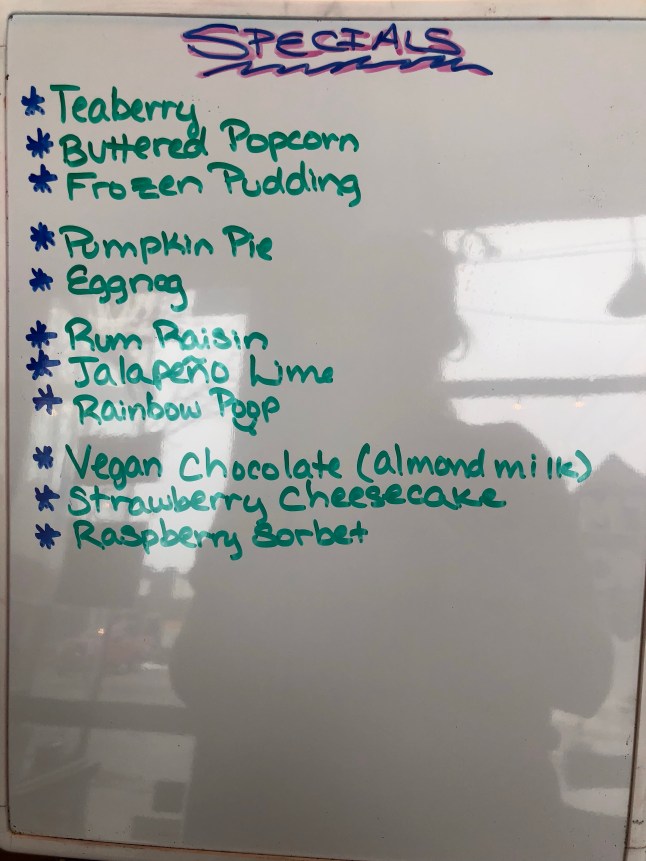 SPECIALS
* Teaberry
* Buttered Popcorn
* Frozen Pudding
* Pumpkin Pie
* Eggnog
* Rum Raisin
* Jalapeño Lime
* Rainbow Poop
* Vegan Chocolate (almond milk)
* Strawberry Cheesecake
* Raspberry Sorbet